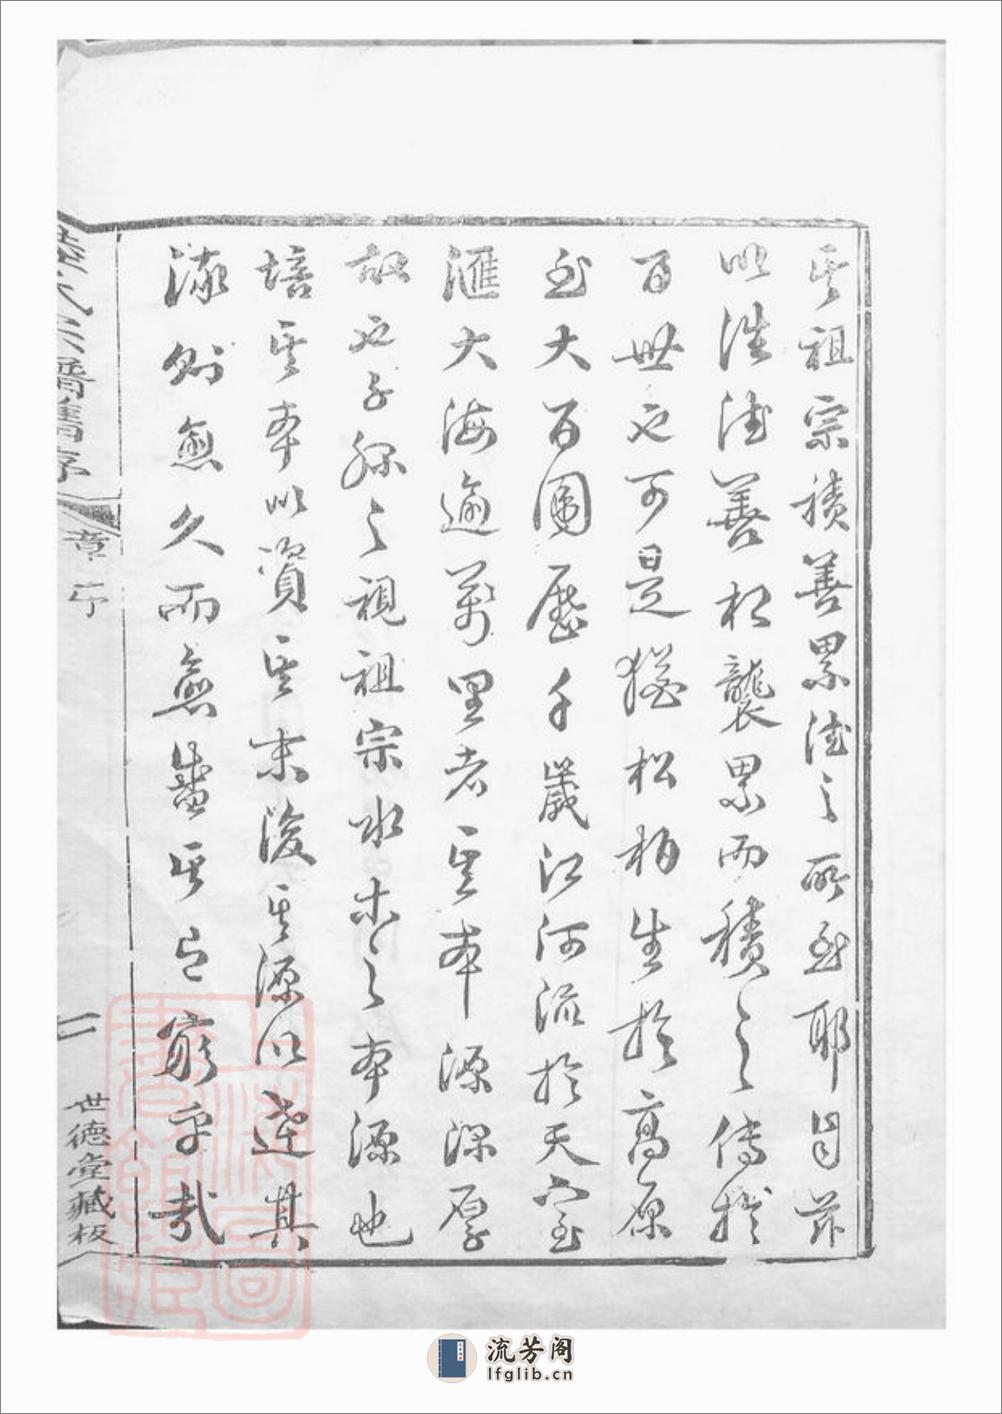 其祖宗積善累德之所致耶自茲
以往德善相襲累而積之傳撰
百世也可是猶松柏生於高原
至大百圍歷千歲江河流於天室
滙大海逾萬里者其本源深厚
故也子孫之視祖宗水木之本源也
培其本以資其末浚其源以達其
流則愈久而愈盛其亡窮乎哉
氏宗譜舊序
章序
一
世德堂藏板
流芳阁
lfglib.cn